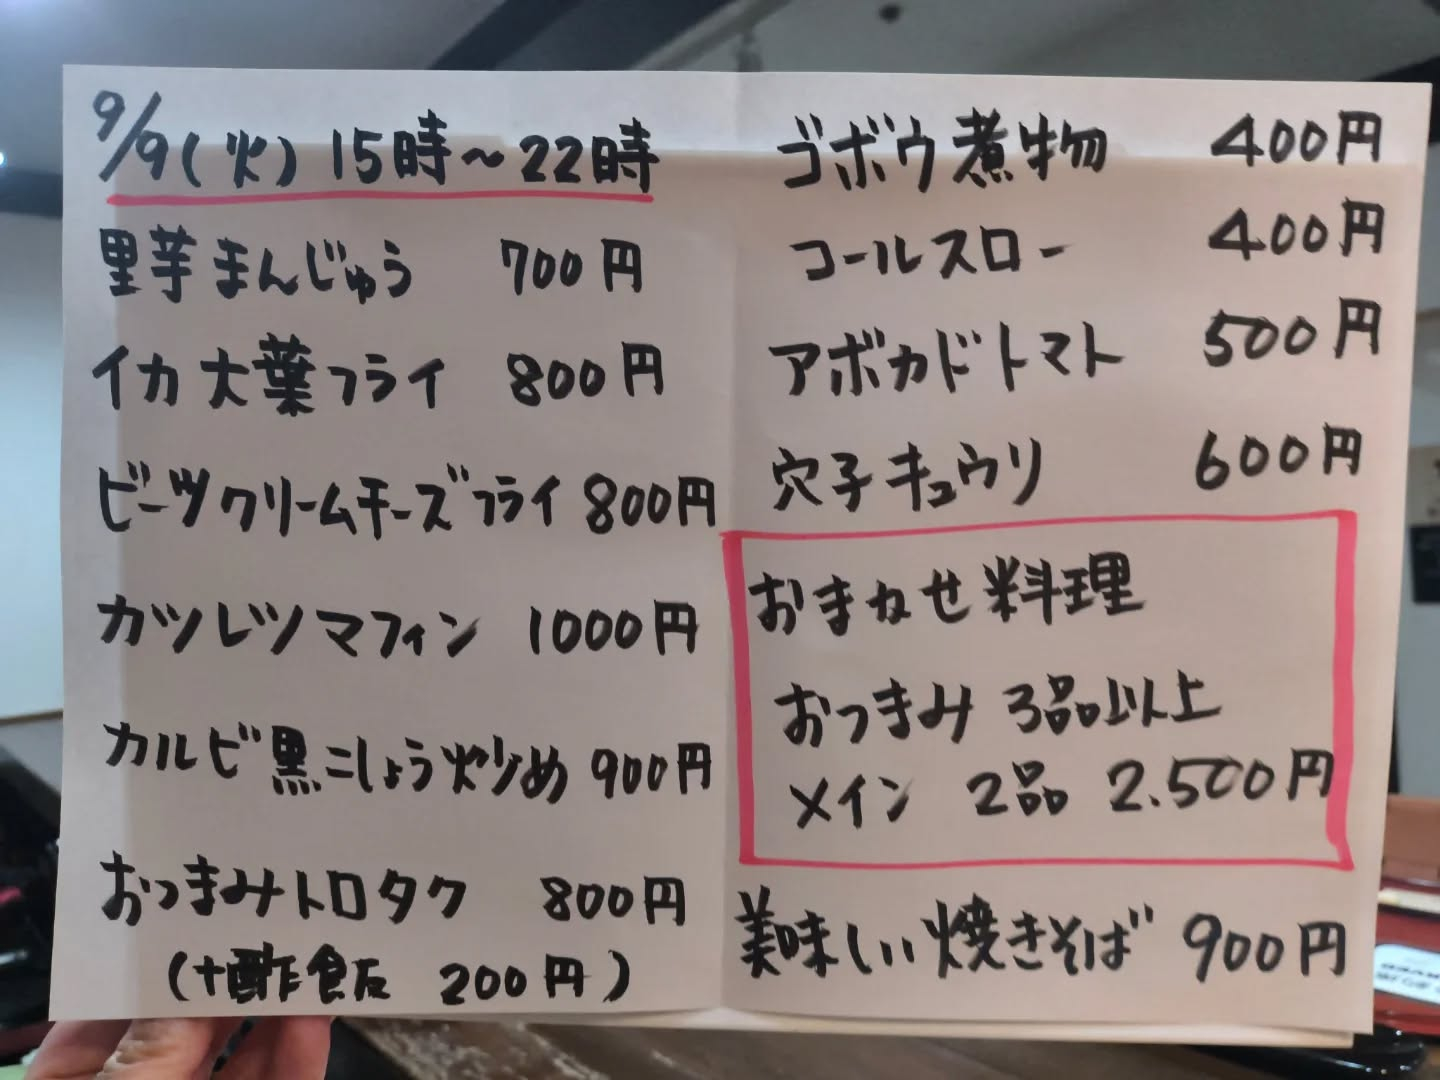 9/9(火) 15時～22時
里芋まんじゅう 700円
イカ大葉フライ 800円
ビーツクリームチーズフライ 800円
カツレツマフィン 1000円
カルビ黒こしょう炒め 900円
おつまみトロタク 800円
(+酢飯 200円)
ゴボウ煮物 400円
コールスロー 400円
アボカドトマト 500円
穴子キュウリ 600円
おまかせ料理
おつまみ 3品以上
メイン 2品 2.500円
美味しい焼きそば 900円